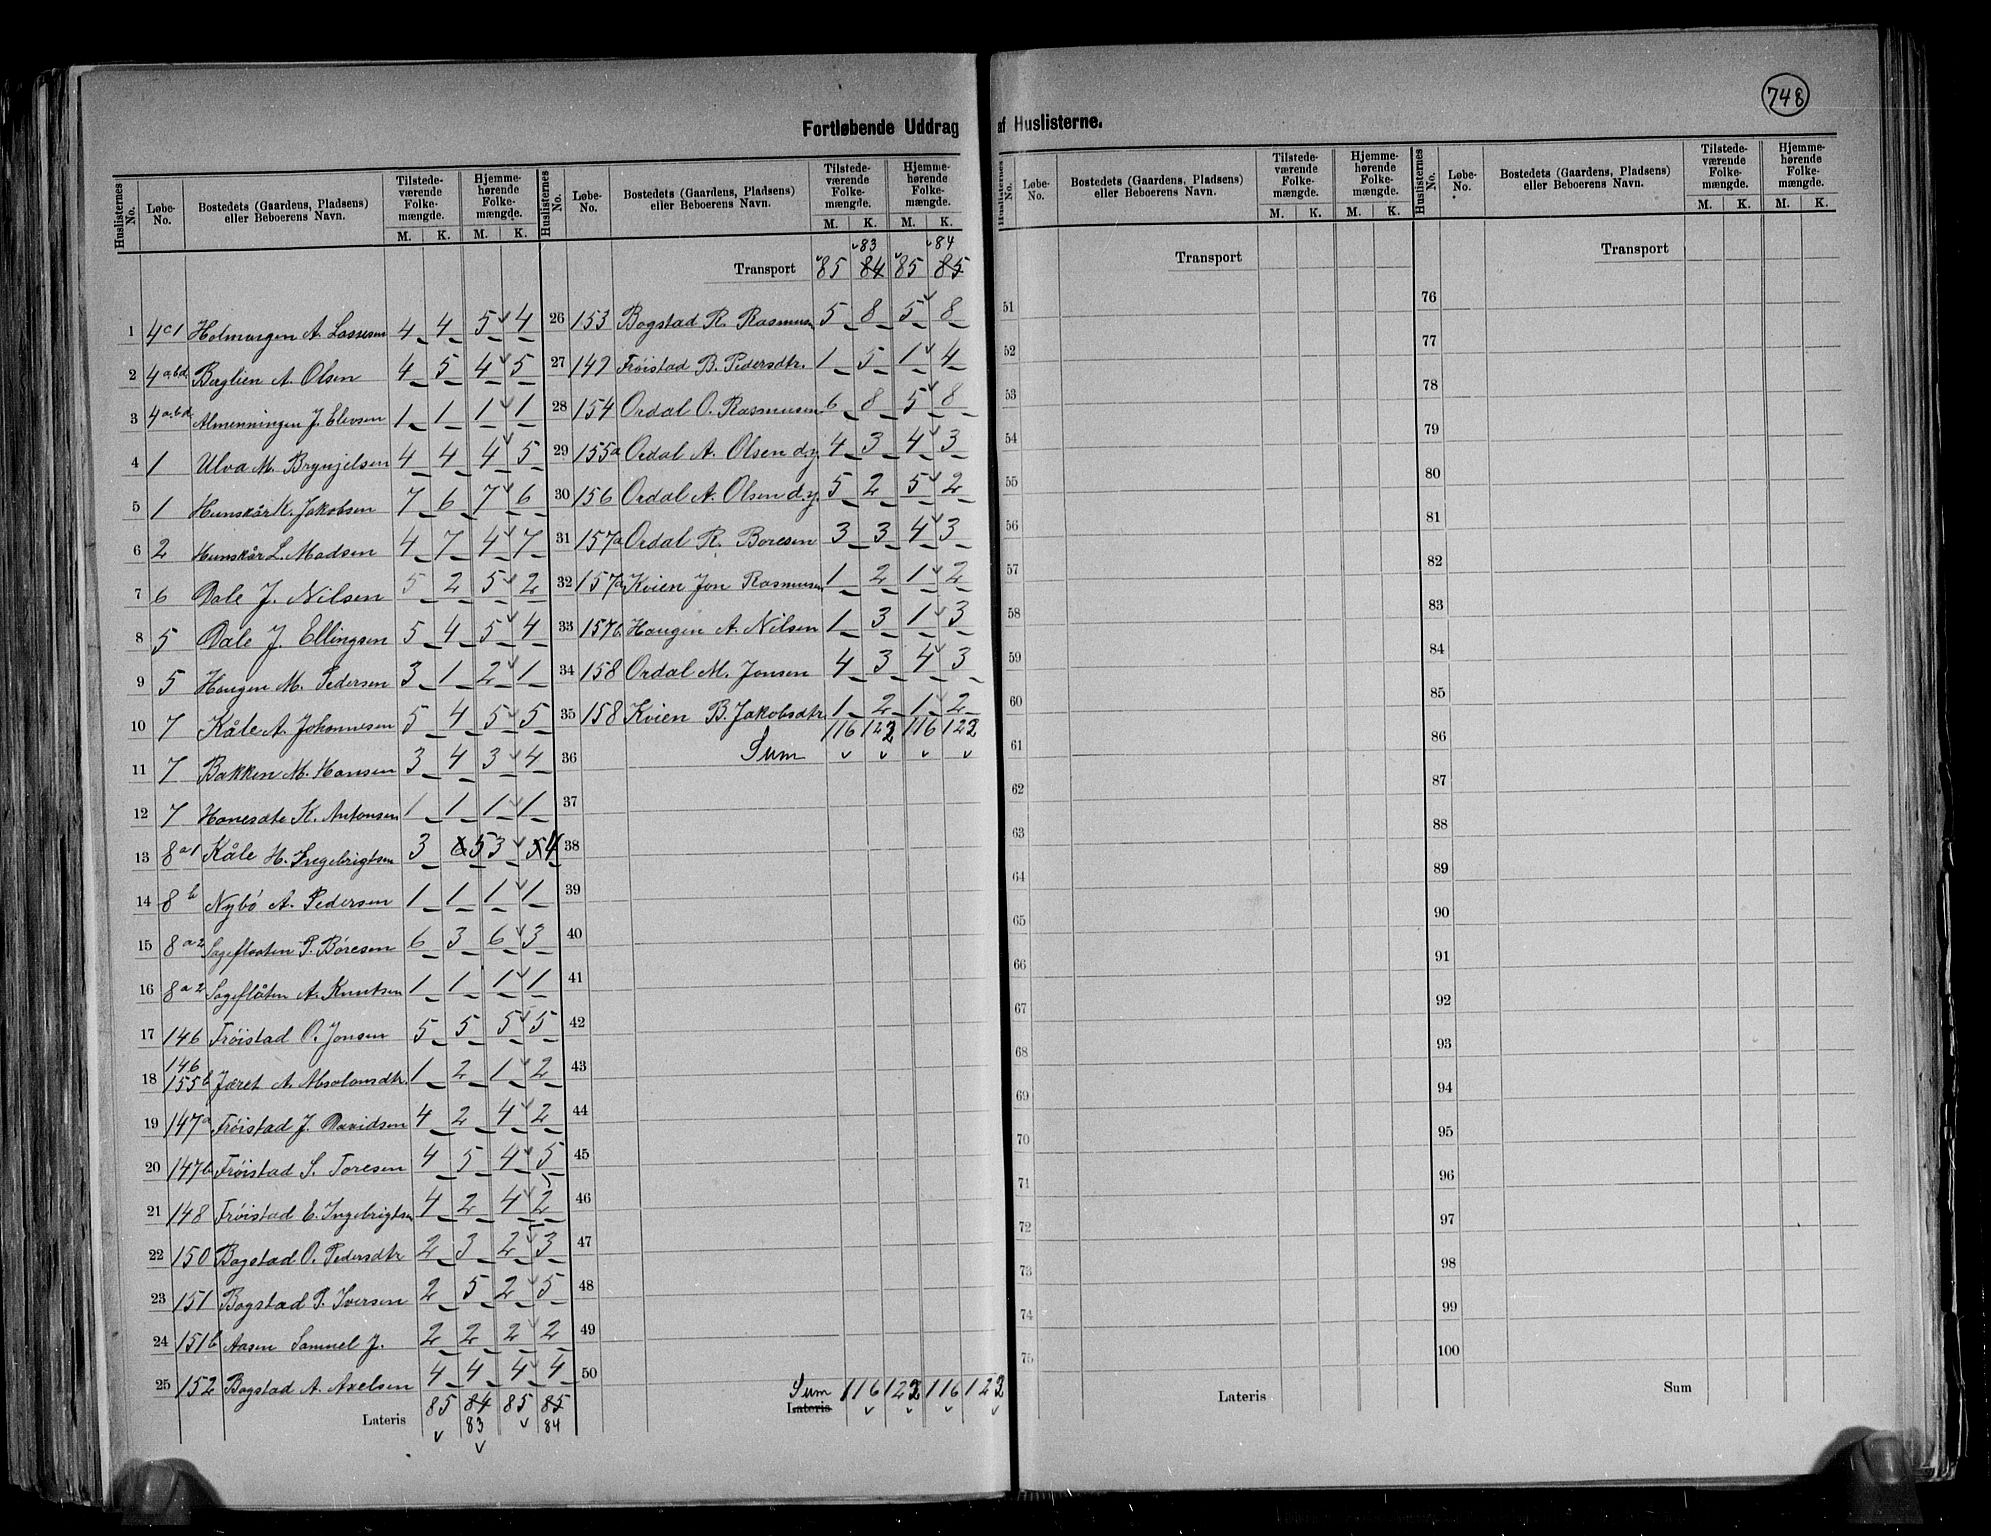 748
Fortløbende Uddrag af Huslisterne.
Huslisternes No. Løbe-No. Bostedets (Gaardens, Pladsens) eller Beboerens Navn. Tilstede-værende Folke-mængde. M. K. Hjemme-hørende Folke-mængde. M. K.
1 4c1 Holmvigen A. Lassesen 4 4 5 4
2 4a,b,d Berglien A. Olsen 4 5 4 5
3 4a,b,d Almenningen J. Elevsen 1 1 1 1
4 1 Ulva M. Brynjelsen 4 4 4 5
5 1 Hunskår K. Jakobsen 7 6 7 6
6 2 Hunskår L. Madsen 4 7 4 7
7 6 Dale J. Nilsen 5 2 5 2
8 5 Dale J. Ellingsen 5 4 5 4
9 5 Haugen M. Pedersen 3 1 2 1
10 7 Kåle A. Johannesen 5 4 5 5
11 7 Bakken M. Hansen 3 4 3 4
12 7 K. Antonsen 1 1 1 1
13 8a1 Kåle H. Ingebrigtsen 3 6 5 3 5 4
14 8b Nybø A. Pedersen 1 1 1 1
15 8a2 Sagefloaten P. Børesen 6 3 6 3
16 8a2 Sageflåten A. Knutsen 1 1 1 1
17 146 Frøistad O. Jonsen 5 5 5 5
18 146 155b Jæret A. Absolomsdtr. 1 2 1 2
19 147a Frøistad J. Davidsen 4 2 4 2
20 147b Frøistad S. Toresen 4 5 4 5
21 148 Frøistad E. Ingebrigtsen 4 2 4 2
22 150 Bogstad O. Pedersdtr 2 3 2 3
23 151 Bogstad P. Iversen 2 5 2 5
24 151b Aasen Samuel J. 2 2 2 2
25 152 Bogstad A. Axelsen 4 4 4 4
Lateris 85 84 85 85
83 84
Huslisternes No. Løbe-No. Bostedets (Gaardens, Pladsens) eller Beboerens Navn. Tilstede-værende Folke-mængde. M. K. Hjemme-hørende Folke-mængde. M. K.
83 84
Transport 85 84 85 85
26 153 Bogstad R. Rasmusn 5 8 5 8
27 149 Frøistad B. Pedersdtr. 1 5 1 4
28 154 Ordal O. Rasmusen 6 8 5 8
29 155a Ordal A. Olsen d.y. 4 3 4 3
30 156 Ordal A. Olsen d.y. 5 2 5 2
31 157a Ordal R. Boresen 3 3 4 3
32 157a Kvien Jon Rasmusen 1 2 1 2
33 157b Haugen A. Nilsen 1 3 1 3
34 158 Ordal M. Jonsen 4 3 4 3
35 158 Kvien B. Jakobsdtr 1 2 1 2
116 122 116 122
36 Sum
37
38
39
40
41
42
43
44
45
46
47
48
49
50
Sum 116 122 116 122
Lateris
Huslisternes No. Løbe-No. Bostedets (Gaardens, Pladsens) eller Beboerens Navn. Tilstede-værende Folke-mængde. M. K. Hjemme-hørende Folke-mængde. M. K.
Transport
51
52
53
54
55
56
57
58
59
60
61
62
63
64
65
66
67
68
69
70
71
72
73
74
75
Lateris
Huslisternes No. Løbe-No. Bostedets (Gaardens, Pladsens) eller Beboerens Navn. Tilstede-værende Folke-mængde. M. K. Hjemme-hørende Folke-mængde. M. K.
Transport
76
77
78
79
80
81
82
83
84
85
86
87
88
89
90
91
92
93
94
95
96
97
98
99
100
Sum